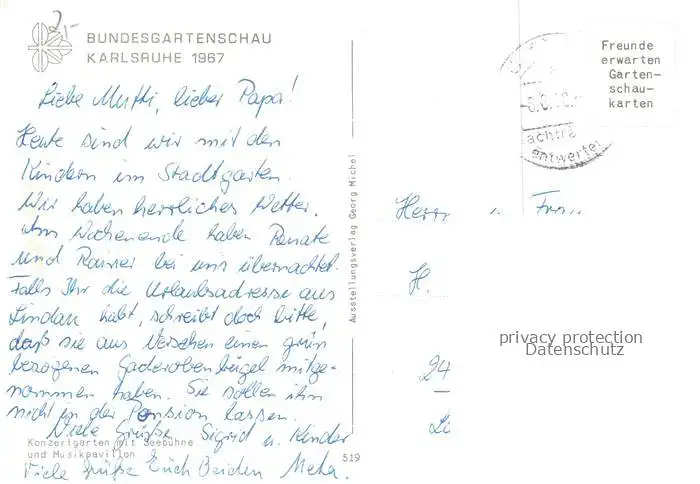 2,-
BUNDESGARTENSCHAU
KARLSRUHE 1967
Liebe Mutti, lieber Papa!
Heute sind wir mit den
Kindern im Stadtgarten.
Wir haben herrliches Wetter.
Am Wochenende haben Renate
und Rainer bei uns übernachtet.
Falls Ihr die Urlaubsadresse aus
Lindau habt, schreibt doch bitte,
daß sie aus Versehen einen grün
bezogenen Gaderobenbügel mitge-
nommen haben. Sie sollen ihn
nicht in der Pension lassen.
Viele Grüße Sigrid u. Kinder
Viele Grüße Euch Beiden Meta.
Konzertgarten mit Seebühne
und Musikpavillon
519
Ausstellungsverlag Georg Michel
Freunde
erwarten
Garten-
schau-
karten
entwertet
Herr
H.
24
privacy protection
Datenschutz